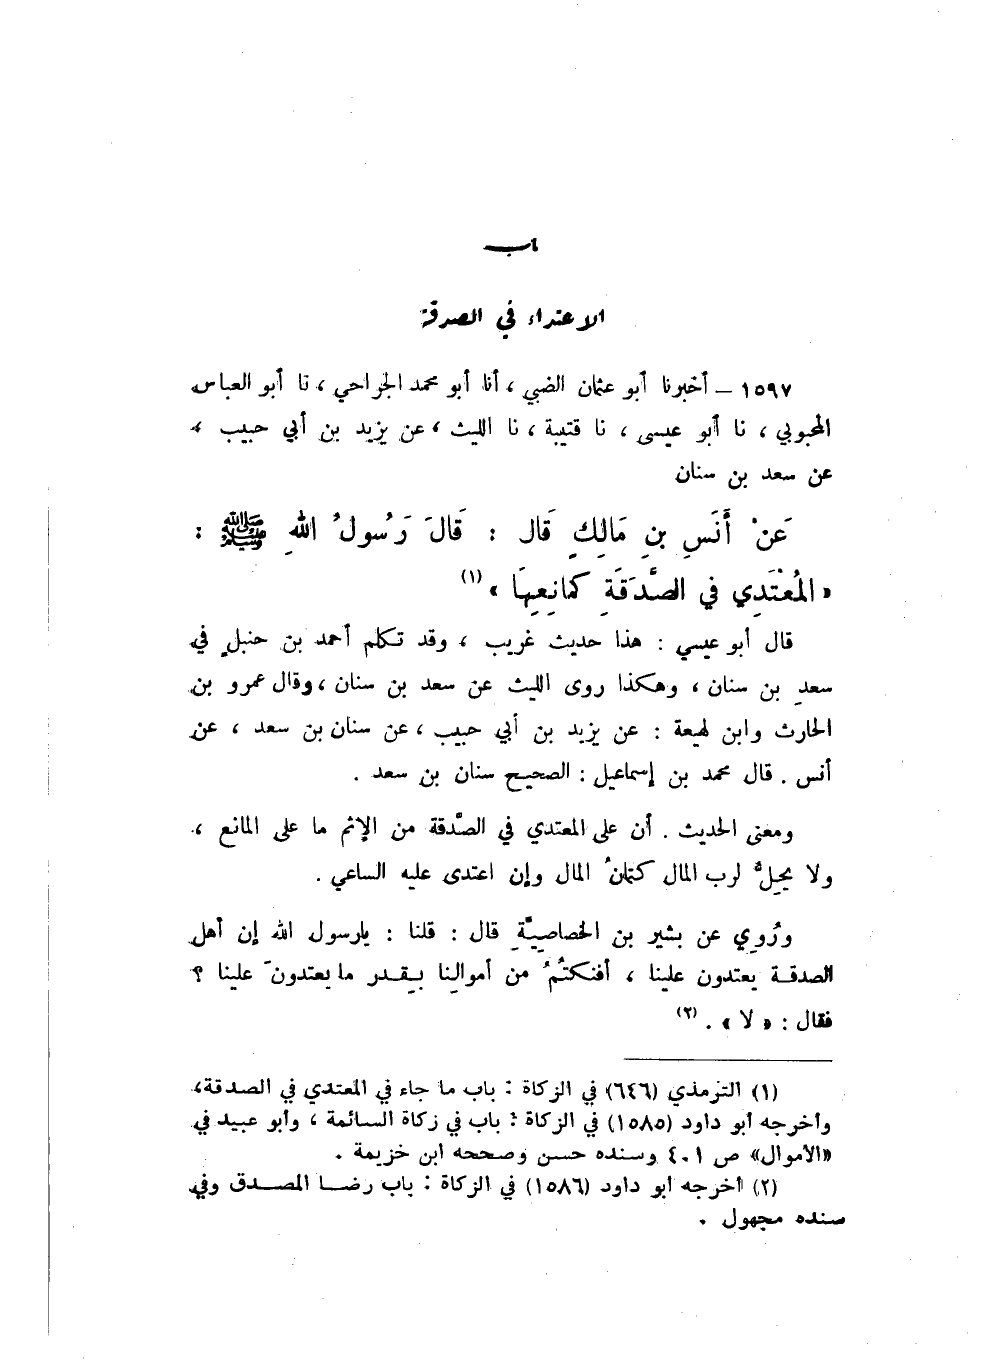 باب
الاعتداء في الصدقة
١٥٩٧ – أخبرنا أبو عثمان الضبي ، أنا أبو محمد الجراحي ، نا أبو العباس
المحبوبي ، نا أبو عيسى ، نا قتيبة ، نا الليث ، عن يزيد بن أبي حبيب ،
عن سعد بن سنان
عَنْ أَنَسِ بنِ مَالِكٍ قَال : قَالَ رَسُولُ اللهِ ﷺ :
« المُعْتَدِي في الصَّدَقَةِ كمانِعِهَا » (١)
قال أبو عيسي : هذا حديث غريب ، وقد تكلم أحمد بن حنبلٍ في
سعدِ بن سنان ، وهكذا روى الليث عن سعد بن سنان ، وقال عمرو بن
الحارث وابن لهيعة : عن يزيد بن أبي حبيب ، عن سنان بن سعد ، عن
أنس . قال محمد بن إسماعيل : الصحيح سنان بن سعد .
ومعنى الحديث . أن على المعتدي في الصَّدقة من الإثم ما على المانع ،
ولا يحِلُّ لرب المال كتمانُ المال وإن اعتدى عليه الساعي .
ورُوِي عن بشير بن الخصاصِيَّةِ قال : قلنا : يارسول الله إن أهل
الصدقة يعتدون علينا ، أفنكتُمُ من أموالِنا بِقدر ما يعتدونَ علينا ؟
فقال : « لا » . (٢)
(١) الترمذي (٦٤٦) في الزكاة : باب ما جاء في المعتدي في الصدقة،
وأخرجه أبو داود (١٥٨٥) في الزكاة : باب في زكاة السائمة ، وأبو عبيد في
«الأموال» ص ٤٠١ وسنده حسن وصححه ابن خزيمة .
(٢) أخرجه أبو داود (١٥٨٦) في الزكاة : باب رضا المصدق وفي
سنده مجهول .